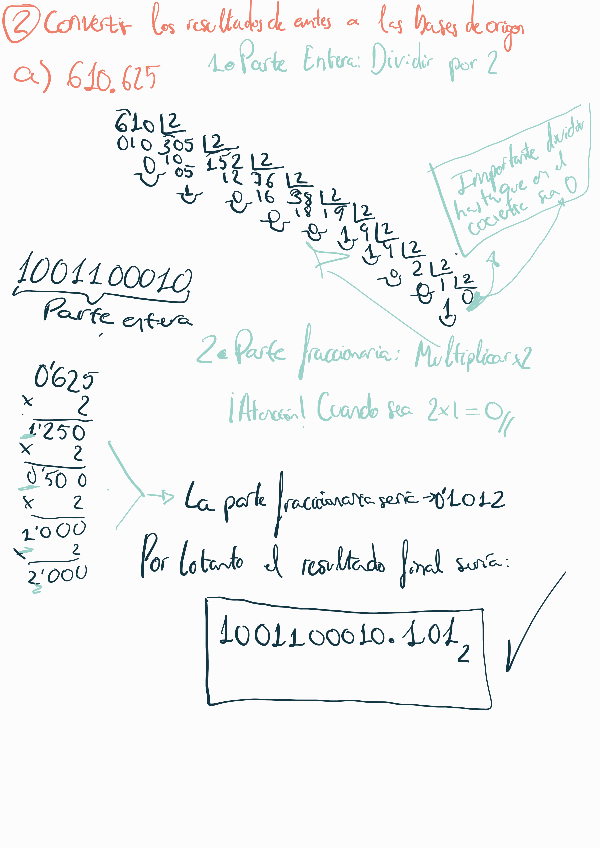 2 Convertir los resultados de antes a las bases de origen
a) 610.625
1. Parte Entera: Dividir por 2
610 2
010 305 2
0 10 152 2
05 12 76 2
1 0 16 38 2
0 18 19 2
0 1 9 2
1 4 2
0 2 2
0 1 2
1 0
Importante dividir
hasta que en el
cociente sea 0
1001100010
Parte entera
2. Parte fraccionaria: Multiplicar x2
¡Atención! Cuando sea 2x1=0//
0'625
x 2
1'250
x 2
0'500
x 2
1'000
x 2
2'000
La parte fraccionaria sería → 0'1012
Por lo tanto el resultado final sería:
1001100010.101₂